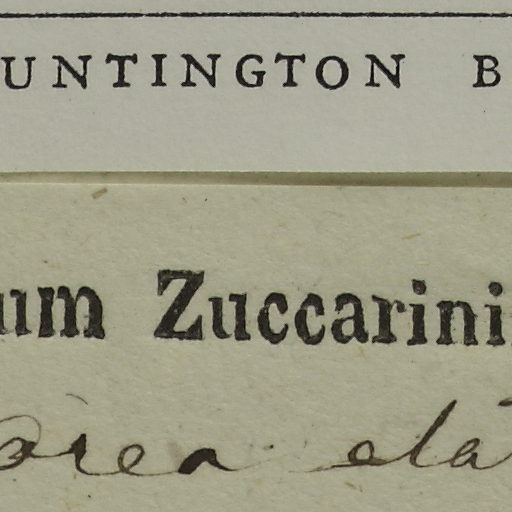 UNTINGTON B
um Zuccarini
orea ela